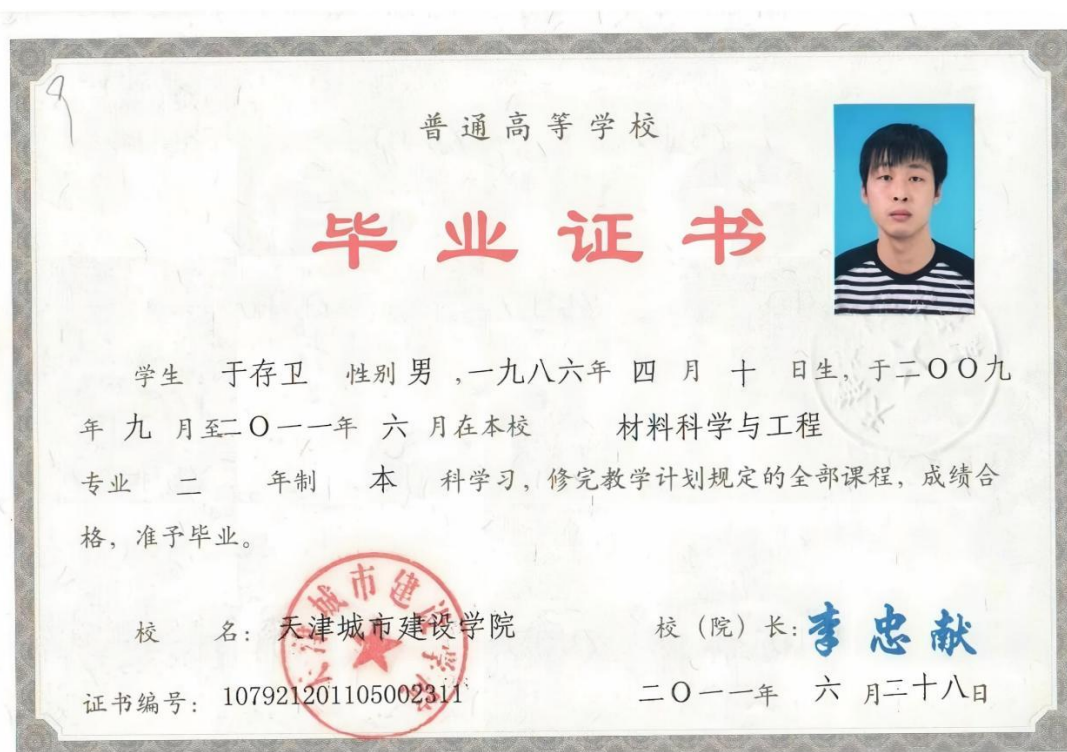 普通高等学校
毕业证书
学生 于存卫 性别 男 ,一九八六年 四 月 十 日生, 于二〇〇九
年 九 月至二〇一一年 六 月在本校 材料科学与工程
专业 二 年制 本 科学习, 修完教学计划规定的全部课程, 成绩合
格, 准予毕业。
天津城市建设学院
校 名: 天津城市建设学院 校 (院) 长: 李忠献
证书编号: 107921201105002311 二〇一一年 六 月二十八日